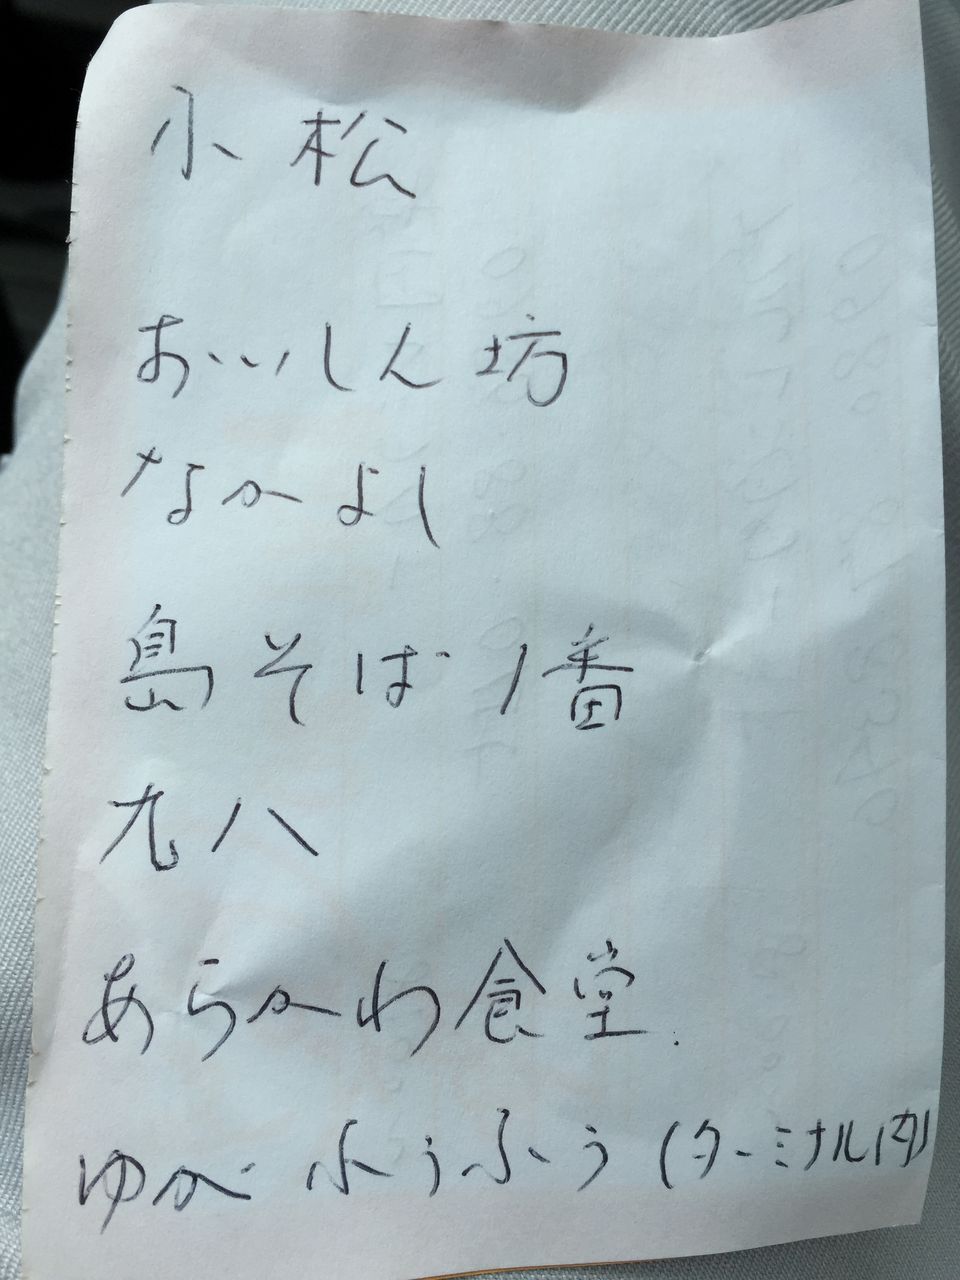 小松
おいしん坊
なかよし
島そば1番
九八
あらかわ食堂
ゆがふうふう(ターミナル内)